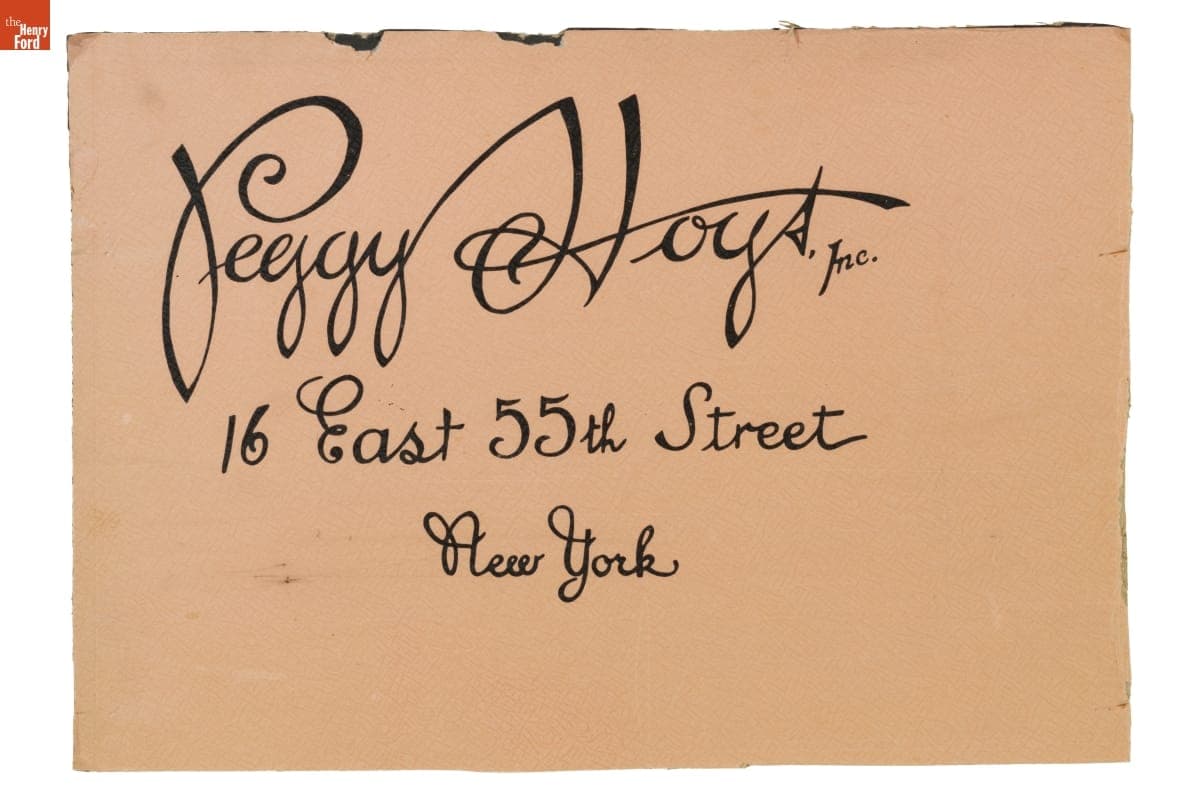 the
Henry
Ford
Peggy Hoyt, Inc.
16 East 55th Street
New York